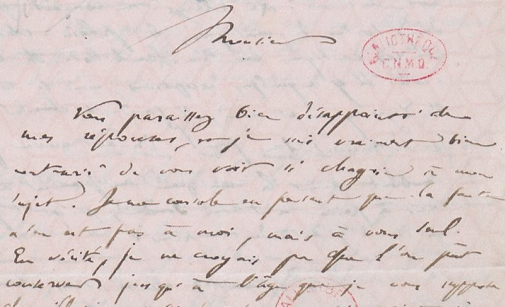 Monsieur
BIBLIOTHÈQUE
C.N.M.D.
Vous paraissez bien désappointé de
mes réponses, et je suis vraiment bien
contrarié de vous voir si chagrin à mon
sujet. Je me console en pensant que la faute
n'en est pas à moi, mais à vous seul.
En vérité, je ne croyais pas que l'on pût
conserver jusqu'à l'âge que je vous suppose